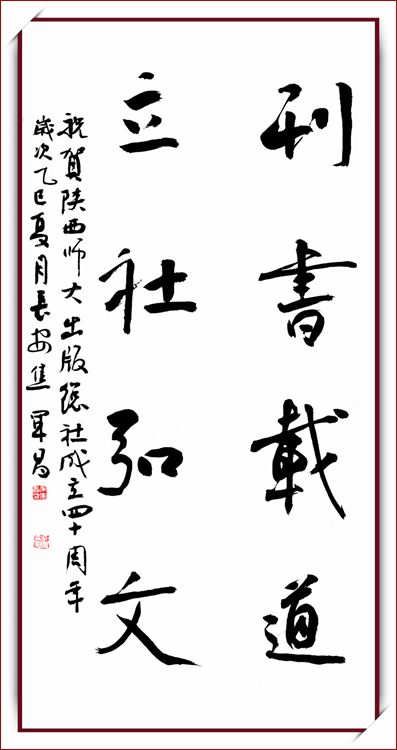 刊書載道
立社弘文
祝賀陕西师大出版總社成立四十周年
歲次乙巳夏月長安焦軍昌